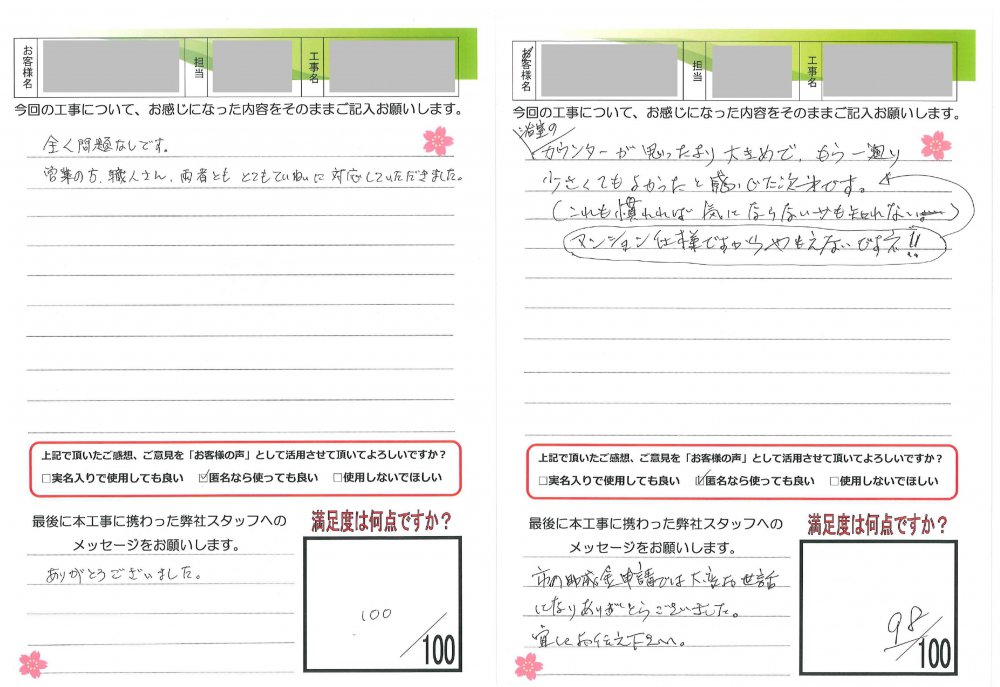 お客様名
担当
工事名
今回の工事について、お感じになった内容をそのままご記入お願いします。
全く問題なしです。
営業の方、職人さん、両者とも とてもていねいに 対応していただきました。
上記で頂いたご感想、ご意見を「お客様の声」として活用させて頂いてよろしいですか？
□実名入りで使用しても良い ☑匿名なら使っても良い □使用しないでほしい
最後に本工事に携わった弊社スタッフへの
メッセージをお願いします。
ありがとうございました。
満足度は何点ですか？
100
/100
お客様名
担当
工事名
今回の工事について、お感じになった内容をそのままご記入お願いします。
浴室の
カウンターが思ったより大きめで、もう一廻り
小さくてもよかったと感じた次第です。
(これも慣れれば気にならないかも知れない)
マンション仕様ですからやもえないですネ!!
上記で頂いたご感想、ご意見を「お客様の声」として活用させて頂いてよろしいですか？
□実名入りで使用しても良い ☑匿名なら使っても良い □使用しないでほしい
最後に本工事に携わった弊社スタッフへの
メッセージをお願いします。
市の助成金申請では大変お世話
になりありがとうございました。
宜しくお伝え下さい。
満足度は何点ですか？
98
/100